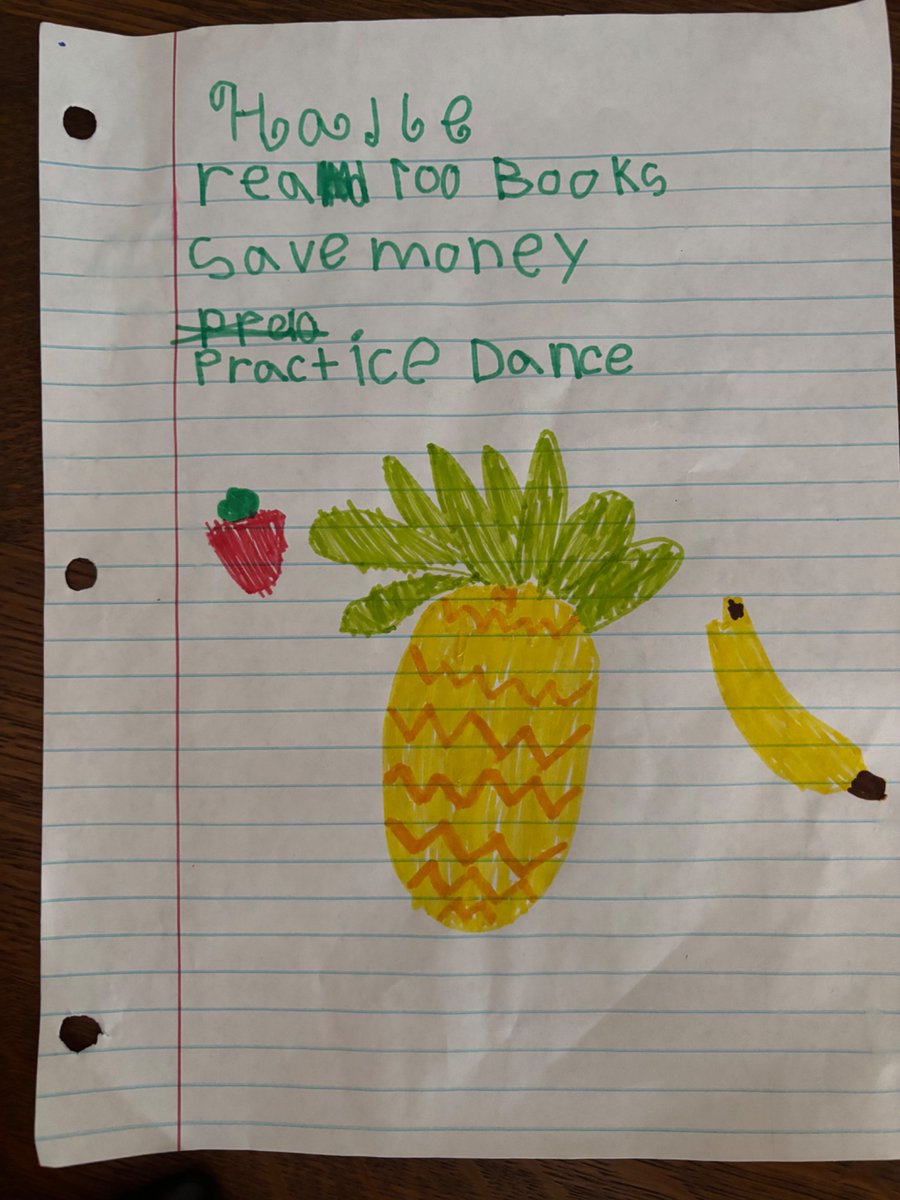 Halle
read 100 Books
Save money
Practice Dance